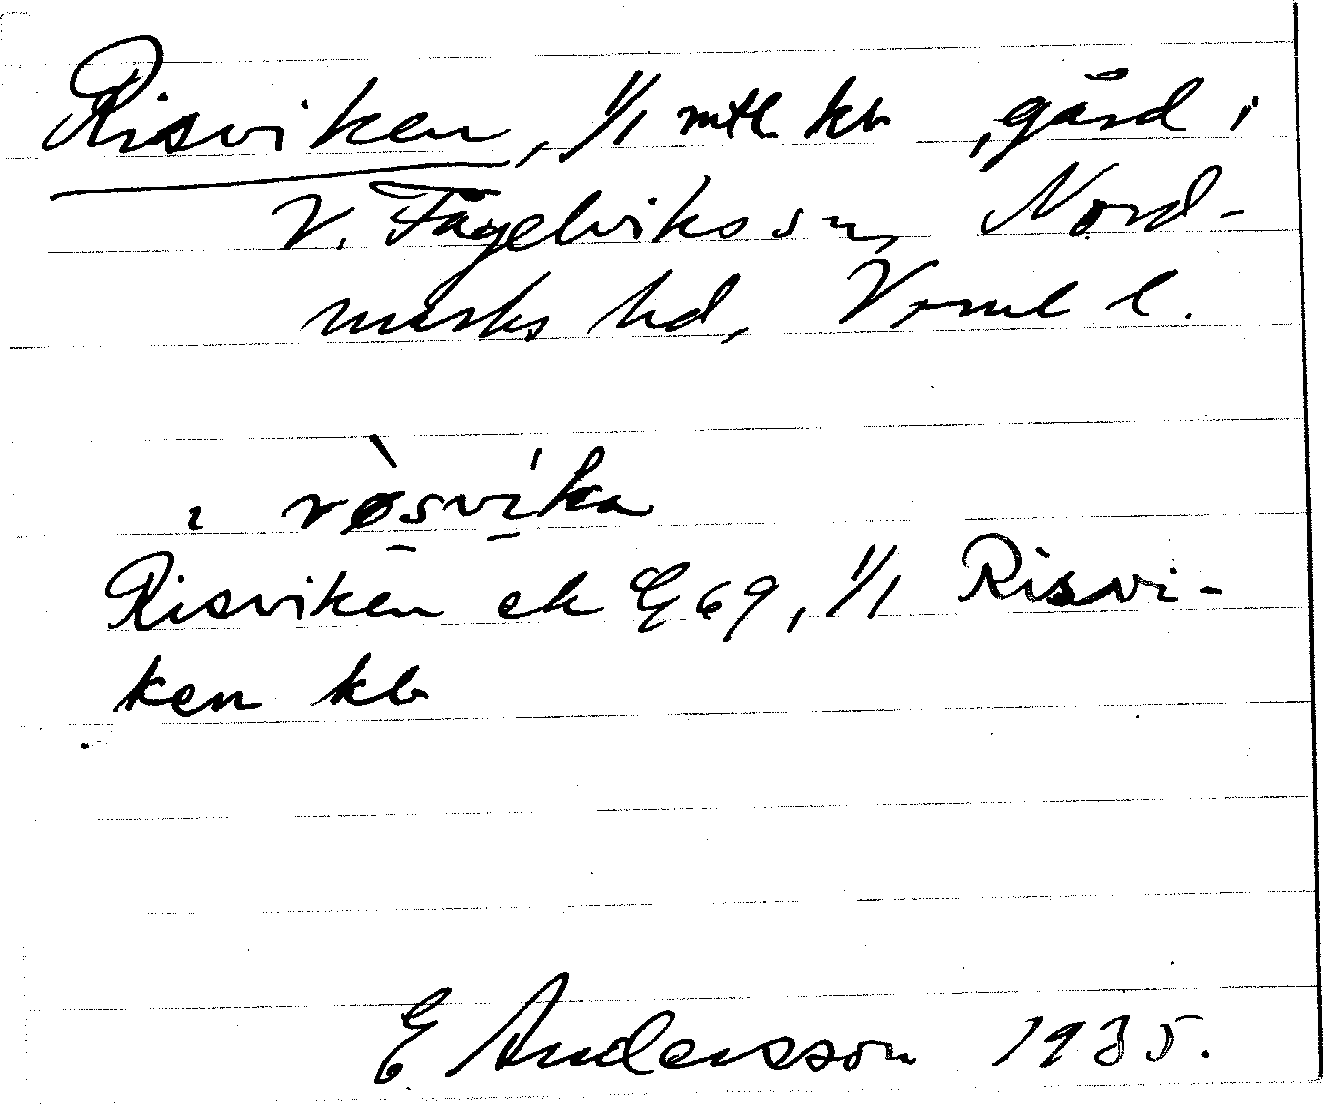 Risviken, 1/1 mtl kb, gård i
V. Fågelviks sn, Nord-
marks hd, Verml l.
i rø̀svíka
Risviken ek E 69, 1/1 Risvi-
ken kb
E Andersson 1935.